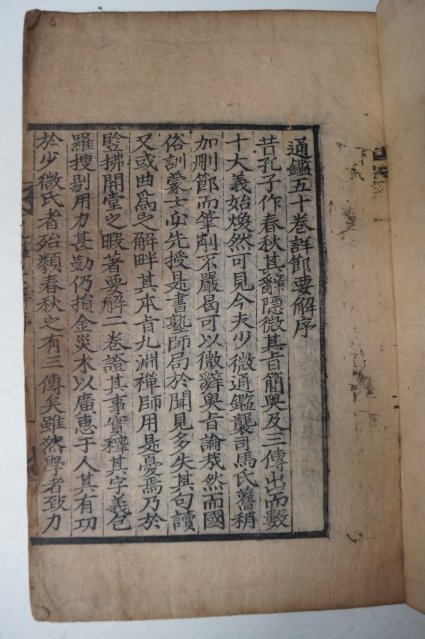 通鑑五十卷詳節要解序
昔孔子作春秋其辭隱微其旨簡奧及三傳出而數
十大義始煥然可見今夫少微通鑑襲司馬氏舊稍
加刪節而筆削不嚴曷可以微辭奧旨論哉然而國
俗訓蒙士必先授是書塾師局於聞見多失其句讀
又或曲爲之解畔其本旨九淵禪師用是憂焉乃於
竪拂開堂之暇著要解一卷證其事實釋其字義包
羅搜剔用力甚勤仍捐金災木以廣惠于人其有功
於少微氏者殆類春秋之有三傳矣雖然學者致力